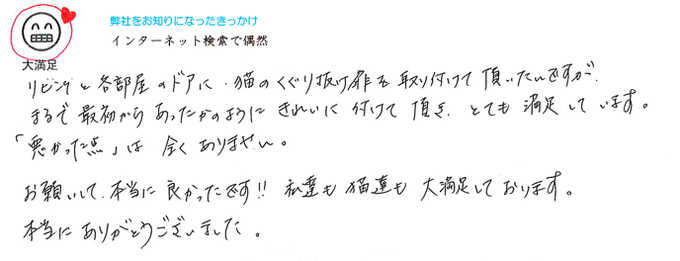 弊社をお知りになったきっかけ
インターネット検索で偶然
大満足
リビングと各部屋のドアに、猫のくぐり抜け扉を取り付けて頂いたんですが、
まるで最初からあったかのようにきれいに付けて頂き、とても満足しています。
「悪かった点」は全くありません。
お願いして、本当に良かったです!! 私達も猫達も大満足しております。
本当にありがとうございました。